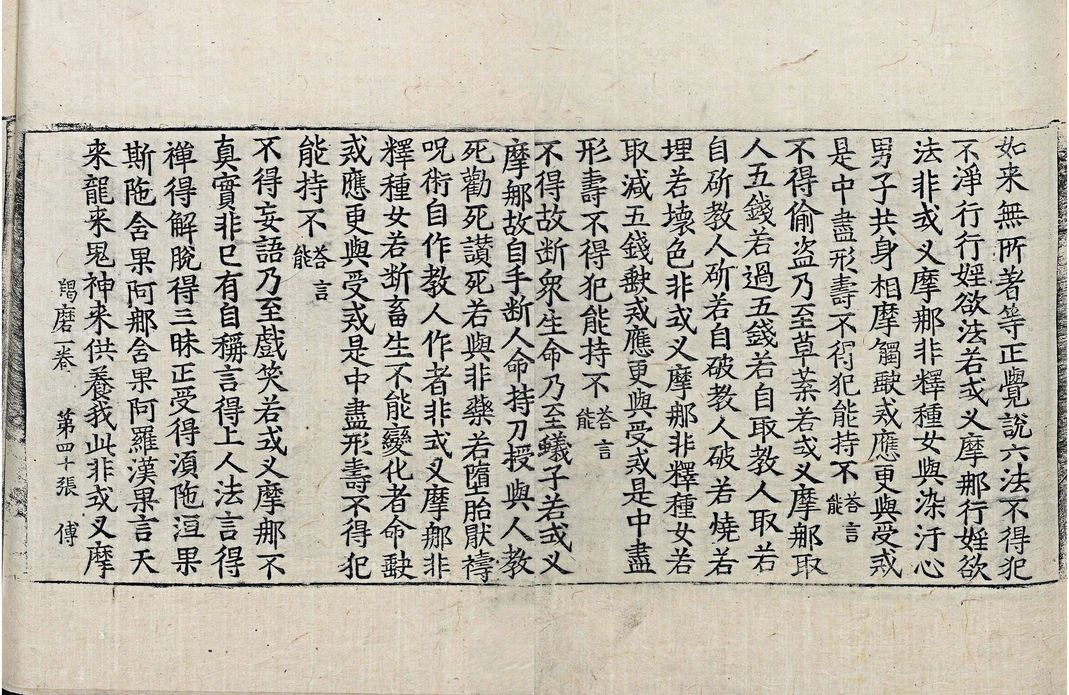 如来無所著等正覺說六法不得犯
不淨行行婬欲法若式义摩那行婬欲
法非式义摩那非釋種女與染汙心
男子共身相摩觸缺戒應更與受戒
是中盡形壽不得犯能持不答言能
不得偷盗乃至草葉若式义摩那取
人五錢若過五錢若自取教人取若
自斫教人斫若自破教人破若燒若
埋若壊色非式义摩那非釋種女若
取減五錢缺戒應更與受戒是中盡
形壽不得犯能持不答言能
不得故断衆生命乃至蟻子若式义
摩那故自手断人命持刀授與人教
死勸死讃死若與非藥若墮胎厭禱
呪術自作教人作者非式叉摩那非
釋種女若断畜生不能變化者命缺
戒應更與受戒是中盡形壽不得犯
能持不答言能
不得妄語乃至戲笑若式义摩那不
真實非已有自稱言得上人法言得
禅得解脫得三昧正受得湏陁洹果
斯陁含果阿那含果阿羅漢果言天
来龍来鬼神来供養我此非式叉摩
羯磨一卷 第四十張 傅